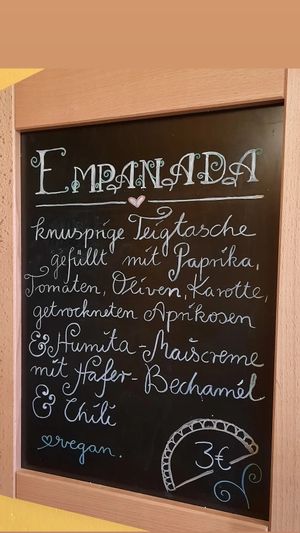 EMPANADA
knusprige Teigtasche
gefüllt mit Paprika,
Tomaten, Oliven, Karotte,
getrockneten Aprikosen
& Humita-Maiscreme
mit Hafer-Bechamél
& Chili
vegan.
3€